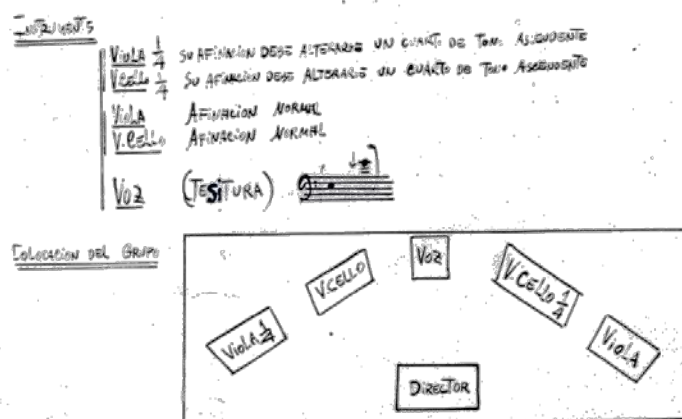 INSTRUMENTOS
VIOLA 1/4 SU AFINACION DEBE ALTERARSE UN CUARTO DE TONO ASCENDENTE
V.CELLO 1/4 SU AFINACION DEBE ALTERARSE UN CUARTO DE TONO ASCENDENTE
VIOLA AFINACION NORMAL
V.CELLO AFINACION NORMAL
VOZ (TESITURA)
COLOCACION DEL GRUPO
VOZ
V.CELLO
V.CELLO 1/4
VIOLA 1/4
VIOLA
DIRECTOR